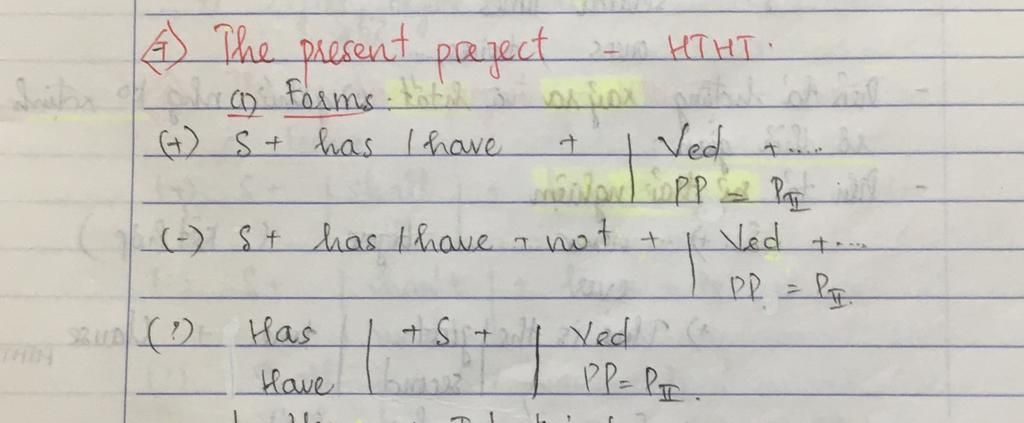 (7) The present prefect - HTHT.
(1) Forms:
(+) S + has / have + | Ved + ....
PP = PII
(-) S + has / have + not + | Ved + ....
PP = PII.
(?) Has | + S + | Ved
Have PP = PII.